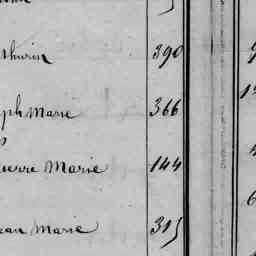 thurin 390
eph Marie 366
ierre Marie 144
ean Marie 315